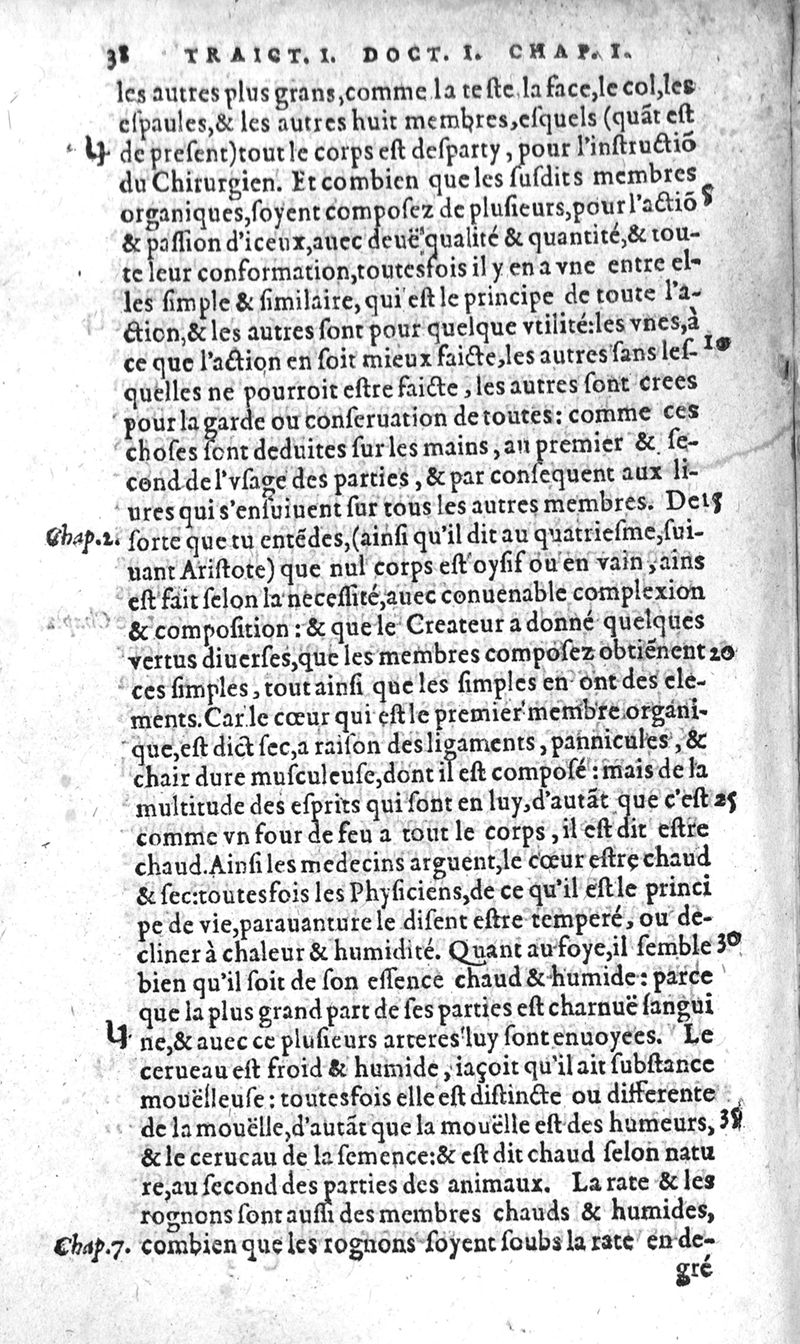 38 TRAICT. I. DOCT. I. CHAP. I.
les autres plus grans, comme la teste, la face, le col, les
espaules, & les autres huit membres, esquels (quãt est
4 de present) tout le corps est desparty, pour l'instructiõ
du Chirurgien. Et combien que les susdits membres
organiques, soyent composez de plusieurs, pour l'actiõ 5
& passion d'iceux, auec deuë qualité & quantité, & tou-
te leur conformation, toutesfois il y en a vne entre el-
les simple & similaire, qui est le principe de toute l'a-
ction, & les autres sont pour quelque vtilité: les vnes, à
ce que l'action en soit mieux faicte, les autres sans les- 10
quelles ne pourroit estre faicte, les autres sont crees
pour la garde ou conseruation de toutes: comme ces
choses sont deduites sur les mains, au premier & se-
cond de l'vsage des parties, & par consequent aux li-
ures qui s'ensuiuent sur tous les autres membres. De 15
Chap. 2. sorte que tu entẽdes, (ainsi qu'il dit au quatriesme, sui-
uant Aristote) que nul corps est oysif ou en vain, ains
est fait selon la necessité, auec conuenable complexion
& composition: & que le Createur a donné quelques
vertus diuerses, que les membres composez obtiẽnent 20
ces simples, tout ainsi que les simples en ont des ele-
ments. Car le cœur qui est le premier membre organi-
que, est dict sec, a raison des ligaments, pannicules, &
chair dure musculeuse, dont il est composé: mais de la
multitude des esprits qui sont en luy, d'autãt que c'est 25
comme vn four de feu a tout le corps, il est dit estre
chaud. Ainsi les medecins arguent, le cœur estre chaud
& sec: toutesfois les Physiciens, de ce qu'il est le princi
pe de vie, parauanture le disent estre temperé, ou de-
cliner à chaleur & humidité. Quant au foye, il semble 30
bien qu'il soit de son essence chaud & humide: parce
que la plus grand part de ses parties est charnuë sangui
4 ne, & auec ce plusieurs arteres luy sont enuoyees. Le
cerueau est froid & humide, iaçoit qu'il ait substance
mouëlleuse: toutesfois elle est distincte ou differente
de la mouëlle, d'autãt que la mouëlle est des humeurs, 35
& le cerueau de la semence: & est dit chaud selon natu
re, au second des parties des animaux. La rate & les
rognons sont aussi des membres chauds & humides,
Chap. 7. combien que les rognons soyent soubs la rate en de-
gré